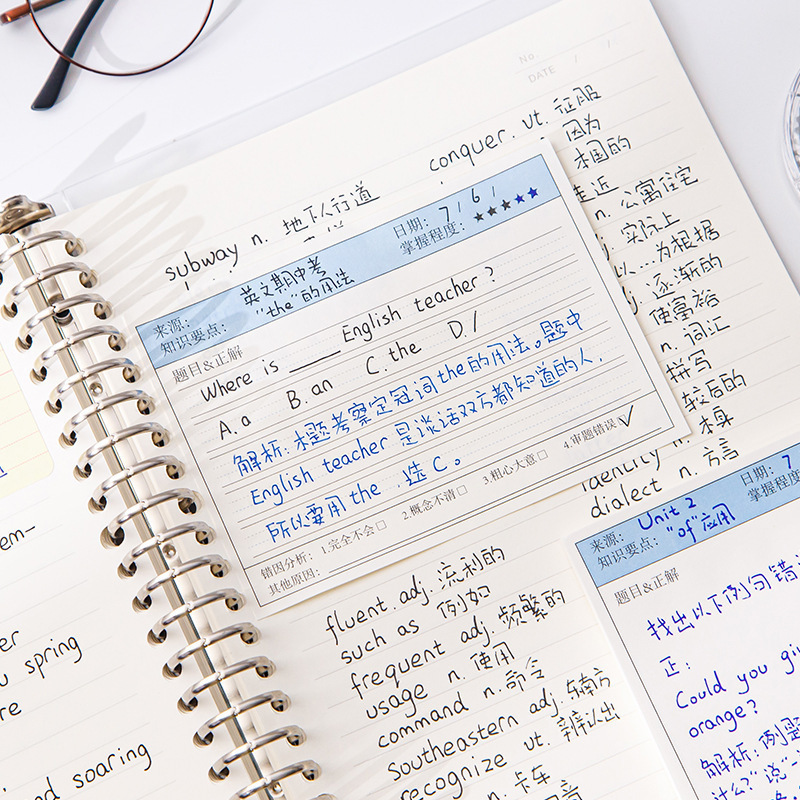 No.
DATE / /
conquer. vt. 征服
因为
本国的
subway n. 地下人行道
走近
n. 公寓住宅
实际上
以...为根据
逐渐的
使富裕
n. 词汇
拼写
较后的
n. 本身
identity n.
dialect n. 方言
来源: 英文期中考 日期: 7/6/
知识要点: "the"的用法 掌握程度: ★★★★★
题目&正解
Where is ____ English teacher?
A. a B. an C. the D. /
解析: 本题考察定冠词the的用法。题中
English teacher 是谈话双方都知道的人.
所以要用the . 选 C。
错因分析: 1.完全不会□ 2.概念不清□ 3.粗心大意□ 4.审题错误☑
其他原因:
fluent. adj. 流利的
such as 例如
frequent adj. 频繁的
usage n. 使用
command n. 命令
Southeastern adj. 东南方
recognize vt. 辨认出
n. 卡车
来源: Unit 2 日期: 7
知识要点: "of"应用 掌握程度
题目&正解
找出以下例句错
正:
Could you
orange?
解析: 例题
什么?"说"
em-
er
u spring
re
nd soaring